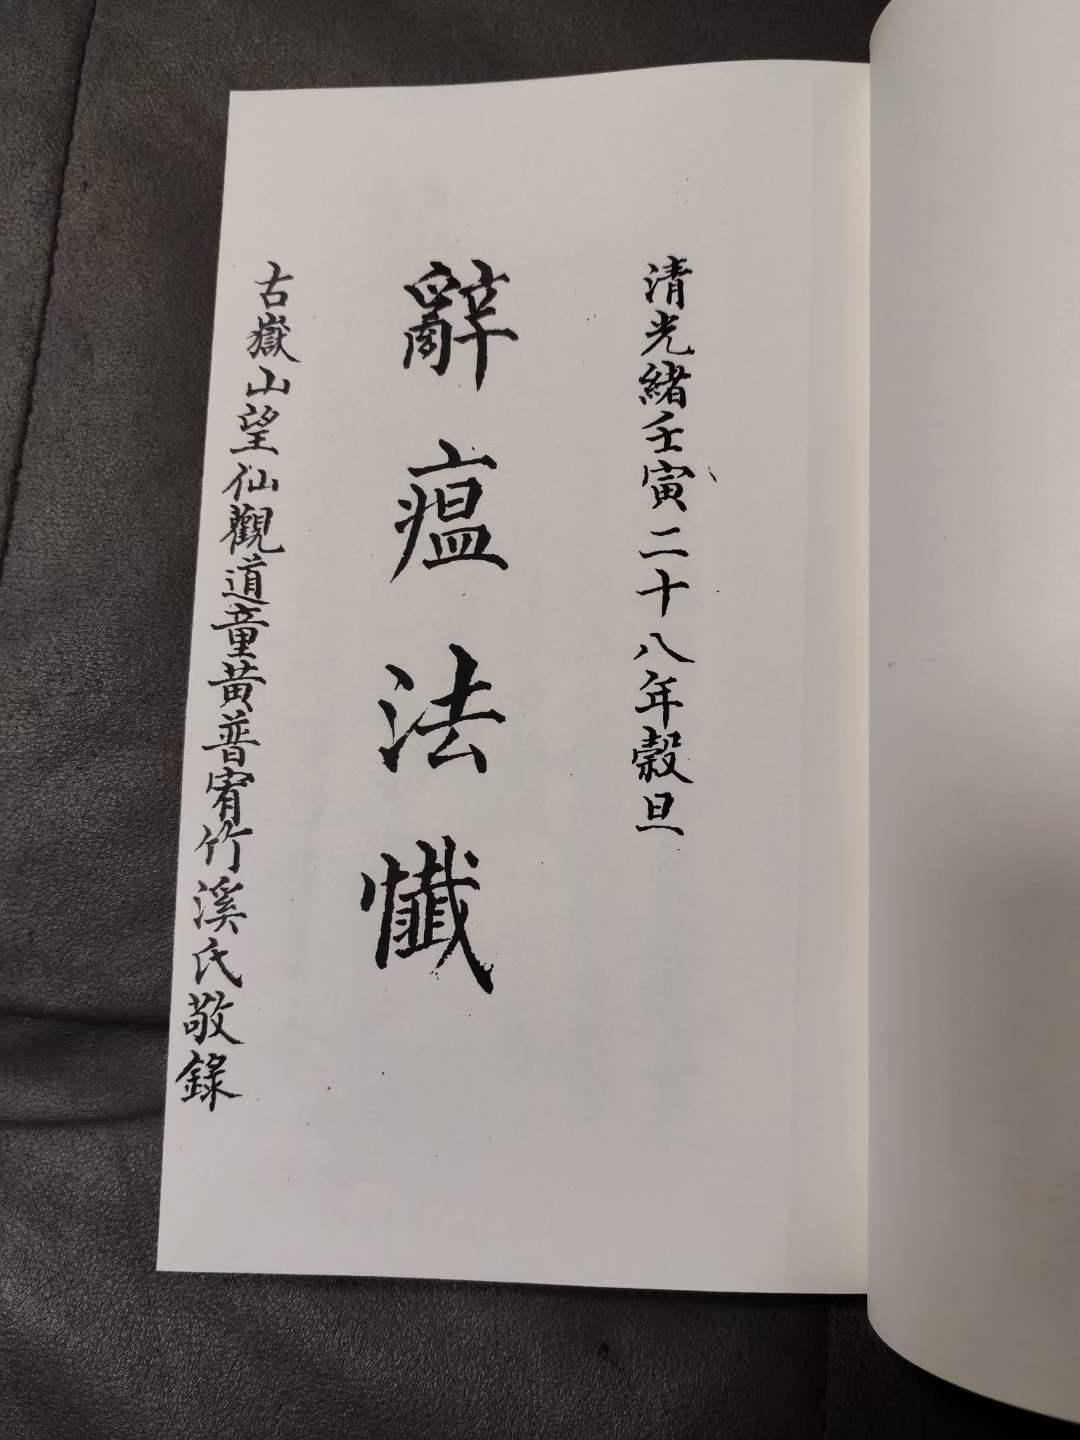 清光緒壬寅二十八年穀旦
辭瘟法懺
古嶽山望仙觀道童黃普宥竹溪氏敬錄